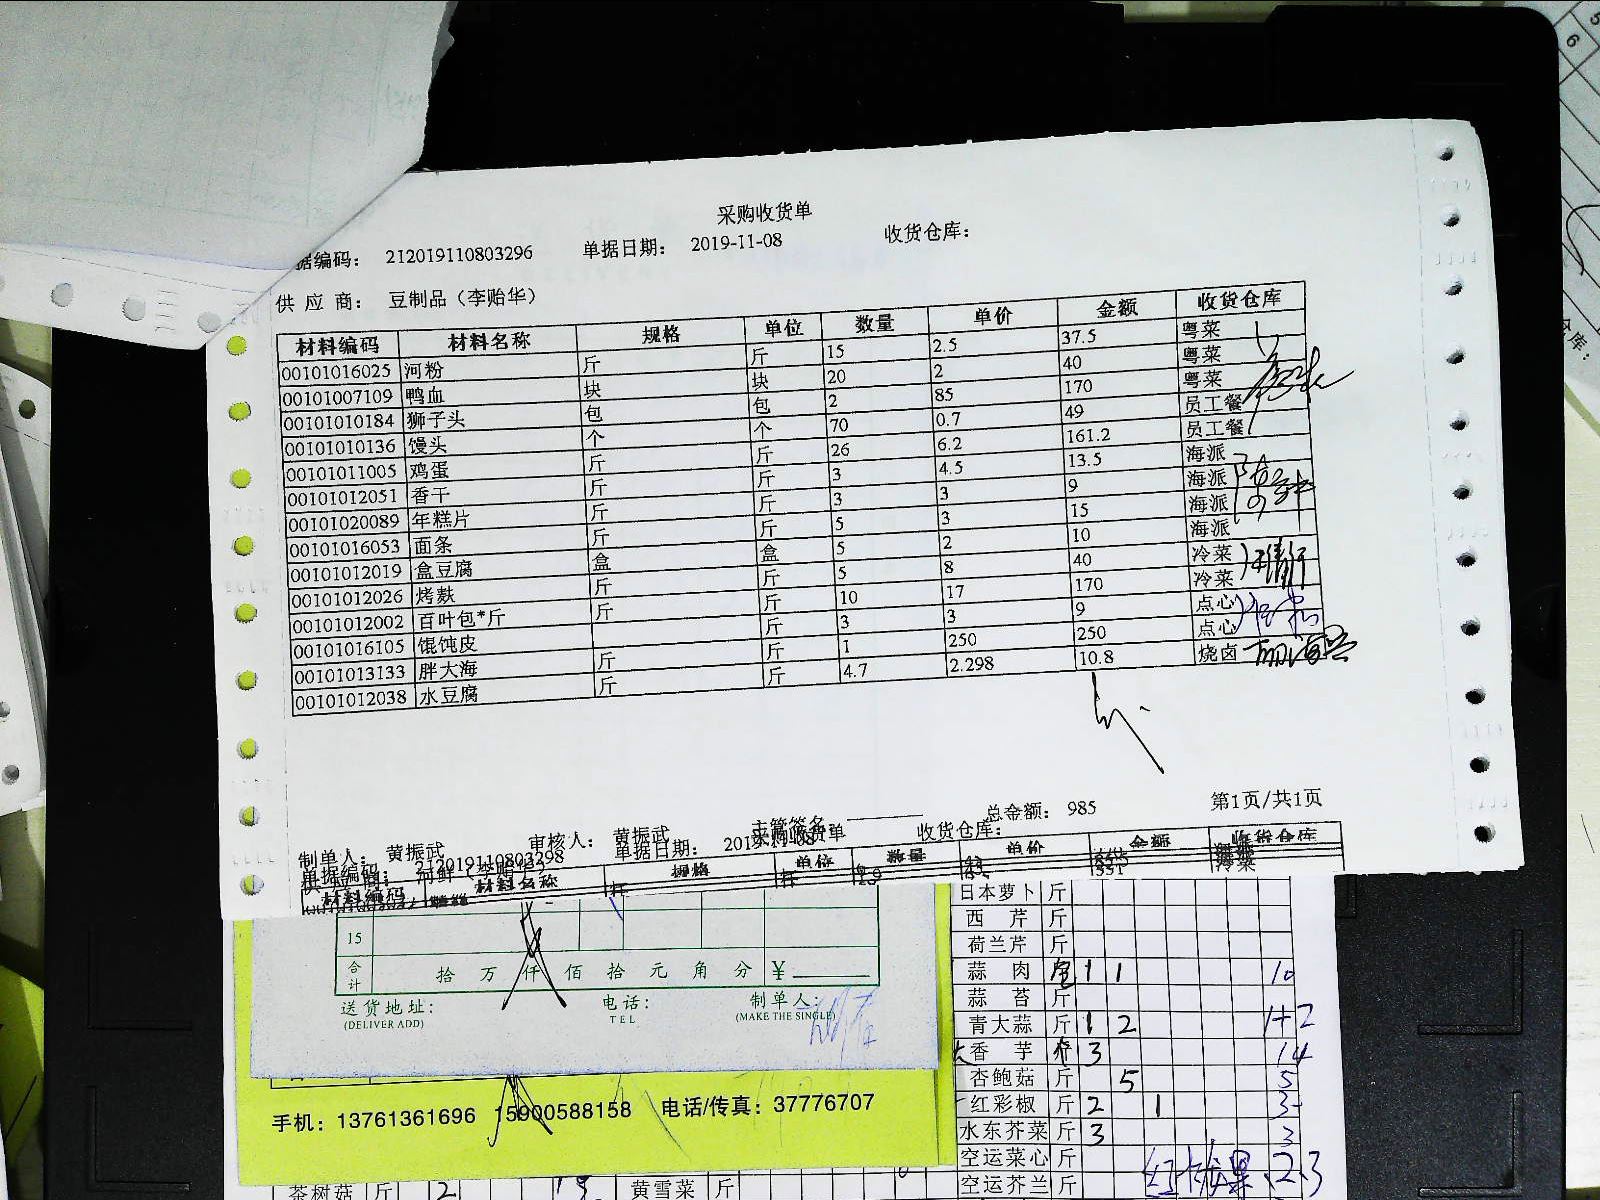 采购收货单
据编码： 212019110803296 单据日期： 2019-11-08 收货仓库：
供 应 商： 豆制品（李贻华）
材料编码 材料名称 规格 单位 数量 单价 金额 收货仓库
00101016025 河粉 斤 斤 15 2.5 37.5 粤菜
00101007109 鸭血 块 块 20 2 40 粤菜
00101010184 狮子头 包 包 2 85 170 粤菜
00101010136 馒头 个 个 70 0.7 49 员工餐
00101011005 鸡蛋 斤 斤 26 6.2 161.2 员工餐
00101012051 香干 斤 斤 3 4.5 13.5 海派
00101020089 年糕片 斤 斤 3 3 9 海派
00101016053 面条 斤 斤 5 3 15 海派
00101012019 盒豆腐 盒 盒 5 2 10 海派
00101012026 烤麸 斤 斤 5 8 40 冷菜
00101012002 百叶包*斤 斤 斤 10 17 170 冷菜
00101016105 馄饨皮 斤 3 3 9 点心
00101013133 胖大海 斤 斤 1 250 250 点心
00101012038 水豆腐 斤 斤 4.7 2.298 10.8 烧卤
总金额： 985 第1页/共1页
制单人： 黄振武 审核人： 黄振武 主管签名
采购收货单
单据编码： 212019110803298 单据日期： 2019-11-08 收货仓库：
材料编码 材料名称 规格 单位 数量 单价 金额 收货仓库
15
合计 拾 万 仟 佰 拾 元 角 分 ¥
送货地址： 电话： 制单人：
(DELIVER ADD) TEL (MAKE THE SINGLE)
手机：13761361696 15900588158 电话/传真：37776707
日本萝卜 斤
西 芹 斤
荷兰芹 斤
蒜 肉 1 1 10
蒜 苔 斤
青大蒜 斤 1 2 1+2
香 芋 3 14
杏鲍菇 斤 5 5
红彩椒 斤 2 1 3
水东芥菜 斤 3 3
空运菜心 斤
空运芥兰 斤
茶树菇 斤 2 黄雪菜 斤